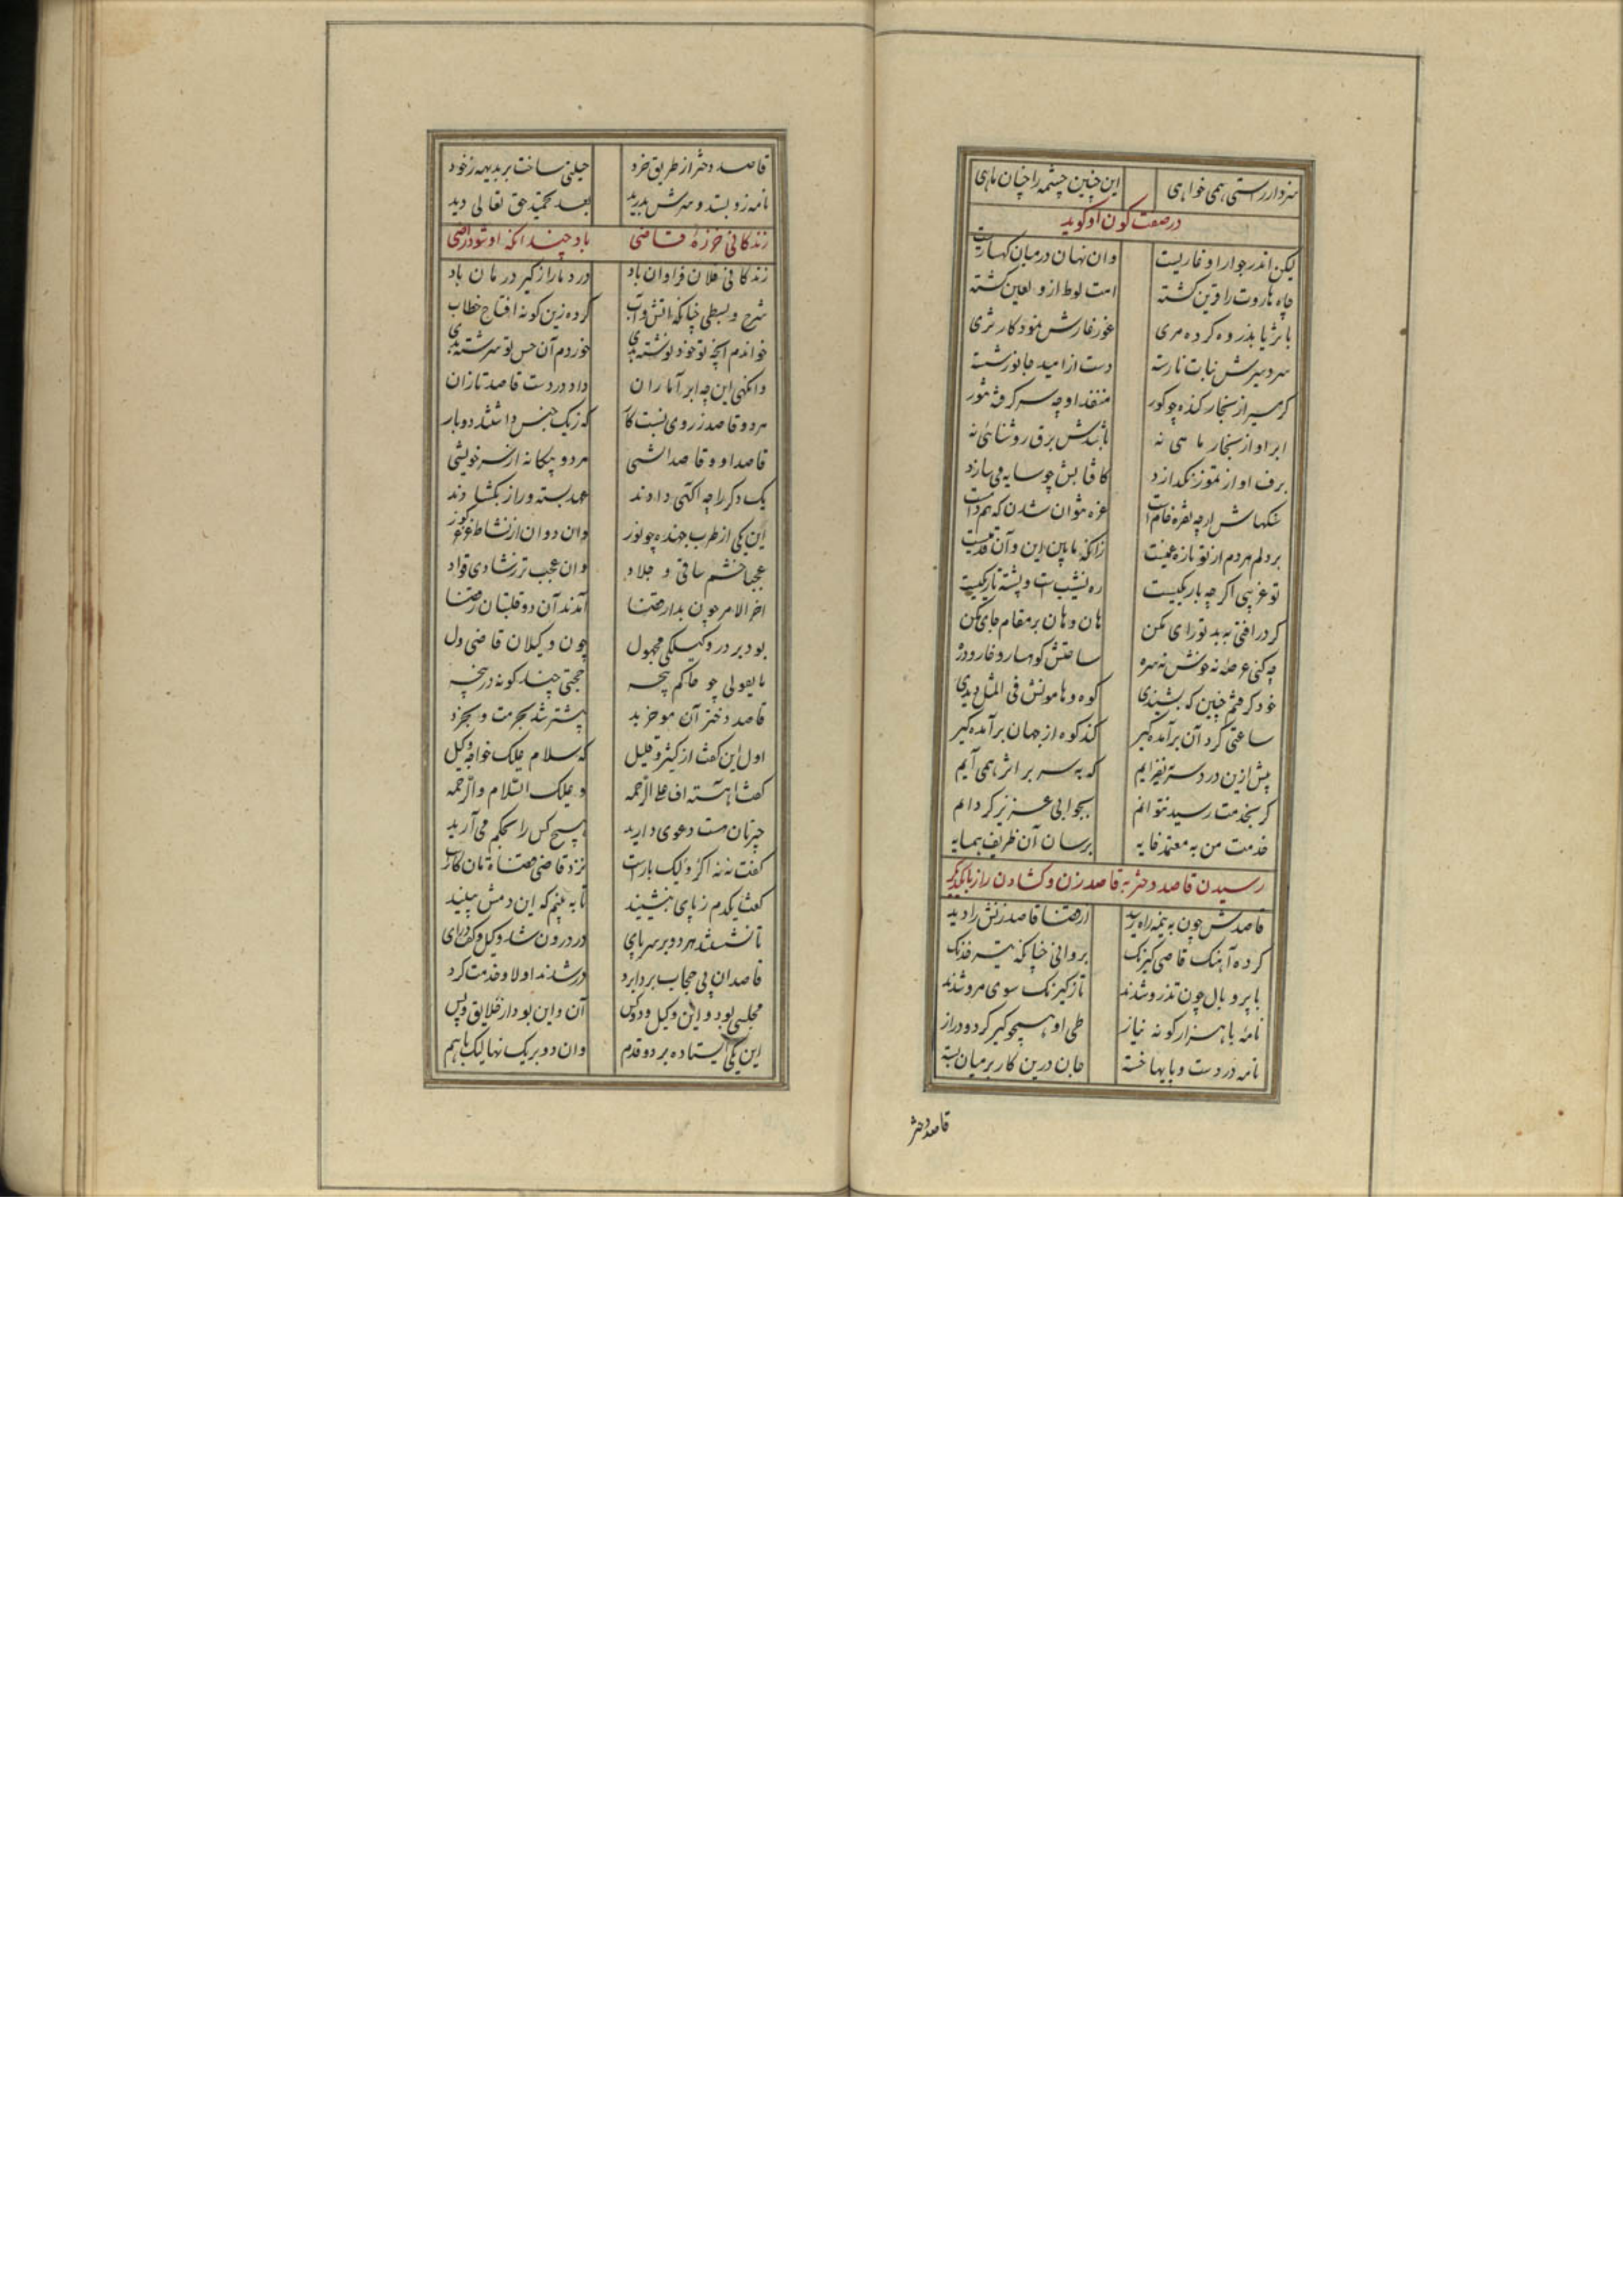 سزد ار راستی همی خواهی این چنین چشمه را چنان ماهی
در صفت کون او کوید
لیکن اندر جوار او غاریست وان نهان در میان کهساریست
چاه هاروت را قرین کشته امت لوط ازو لعین کشته
با ثریا بذروه کرده مری غور غارش نموذ کار ثری
سردسیرش نبات نارسته دست از امید جانور شسته
کرمسیر از بخار کنده چو کور منفذ او چه سر کرفته ثور
ابر او از بخار ماهی نه باشدش برق روشنائی نه
برف او از تموز نکدازد کافتابش چو سایه می سازد
سنکهاش ار چه نقره فام است غره نتوان شدن که هم دام است
بر دلم هر دم از تو تازه غمیست زانکه مابین این و آن قدمیست
تو غریبی اکر چه باریکیست ره نشیب است و پشته تاریکیست
کر در افتی به بد تو رای مکن هان و هان بر مقام جای مکن
چه کنی عرصه نه خوش نه سره ساحتش کوهسار و غار و دره
خود کرفتم چنین که بشنیدی کوه و هامونش فی المثل دیدی
ساعتی کرد آن برآمده کیر کند کوه از جهان برآمده کیر
بیش ازین درد سر نیفزایم که به سر بر اثر همی آیم
کر بخدمت رسید نتوانم بجوابی عزیز کردانم
خدمت من به معتمد فایه برسان آن ظریف همسایه
رسیدن قاصد دختر به قاصد زن و کشادن راز با یکدیکر
قاصدش چون به نیمه راه رسید از قضا قاصد زنش را دید
کرده آهنک قاصی کیرنک بروانی چنانکه تیر خدنک
با پر و بال چون تذرو شدند تاز کیرنک سوی مرو شدند
نامهٔ با هزار کونه نیاز طی او همچو کیر کرد و دراز
نامه در دست و پایها خسته جان درین کار بر میان بسته
قاصد دختر
قاصد دختر از طریق خرد حیلتی ساخت بر بدیهه ز خود
نامه زو بستد و سرش بدرید بعد تحمید حق تعالی دید
زندکانی خرزهٔ قاضی باد چندانکه او شود راضی
زندکانی فلان فراوان باد درد ما را ز کیر درمان باد
شرح و بسطی چنانکه آتش و آب کرده زین کونه افتتاح خطاب
خواندم آنچه تو خود نوشته بدی خوردم آن حس تو سرشته بدی
وانکهی این چه ابر آماران داد در دست قاصد تازان
هر دو قاصد ز روی نسبت کار که ز یک جنس داشتند دو بار
قاصد او و قاصد انثی هر دو بیکانه از سر خویشی
یک دکر را چه آکهی دادند عهد بسته و راز بکشادند
این یکی از طرب جهنده چو نوز وان دوان از نشاط غوز
عجبا خشم ساقی و جلاد وان عجب تر ز شادی قواد
آخر الامر چون بدار قضا آمدند آن دو قلتبان ز قضا
بود بر در وکیلکی مجهول چون وکیلان قاضی ول
با یقولی چو حاکم پنجه حجتی چند کونه در پنجه
قاصد دختر آن موخر بد پیشتر شد بحرمت و بخرد
اول این کفت از کثیر و قلیل که سلام علیک خواجه وکیل
کفت آهسته اف علی الرحمه و علیک السلام والرحمه
چیزتان هست دعوی دارید هیچ کس را بحکم می آرید
کفت نه نه اکر و لیک بار است نزد قاضی قضاة مان کار است
کفت یکدم ز پای بنشینید تا به بینم که این دمش بینید
تا نشستند هر دو بر سر پای در درون شد وکیل و کفت درای
قاصدان بی حجاب بردابرد در شدند اولا و خدمت کرد
مجلسی بود و این وکیل و دو کس آن و این بود از خلایق و بس
این یکی ایستاده بر دو قدم وان دو بر یک نهالیک با هم